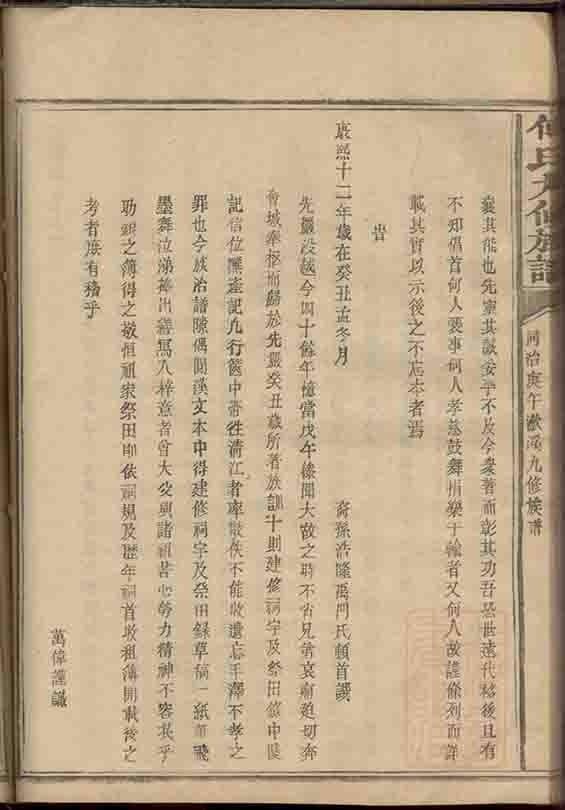 何氏九修族譜
同治庚午 九修族譜
襄其能也先室其誠安乎不及今衆著而彰其功吾恐世遠代移後且有
不知倡首何人要事何人孝慈鼓舞捐樂于輸者又何人故謹條列而詳
載其實以示後之不忘本者焉
旹
康熙十二年歲在癸丑孟冬月
裔孫浩隆禹門氏頓首譔
先嚴没越今四十餘年憶當戊午條聞大故之時不肖兄弟哀痛迫切奔
會城奉柩而歸於先嚴癸丑歲所著族訓十則建修祠宇及祭田錄中陵
記信位 產記九行篋中帶往清江者率散佚不能收遺忘手澤不孝之
罪也今族治譜隙偶閱漢文本中得建修祠宇及祭田錄草稿一紙
墨舞泣涕 出繕寫入梓意者曾大父與諸祖苦心勞力精神不容 乎
功 之薄得之敬恒祖家祭田即依祠規及歷年祠首收租簿開載後之
考者庶有稽乎
萬偉謹識